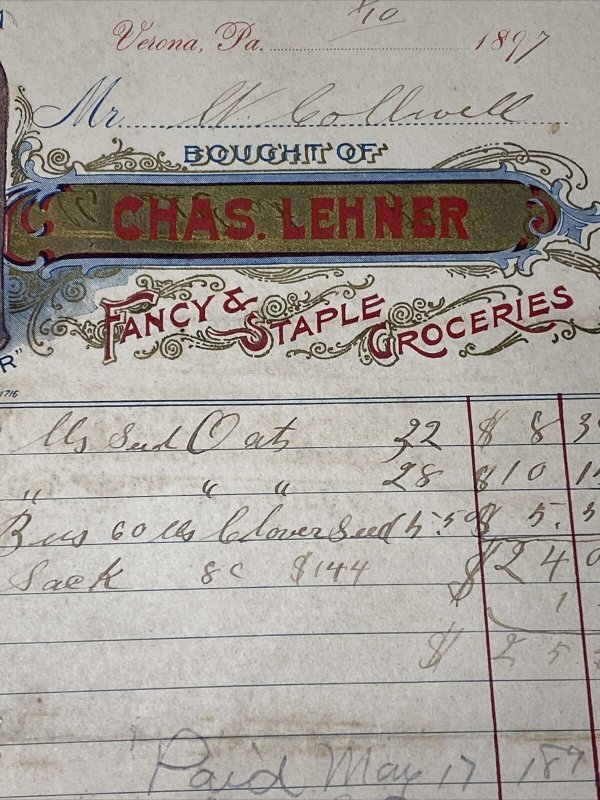 Verona, Pa. /10 1897
Mr. W. Collwell
BOUGHT OF
CHAS. LEHNER
FANCY & STAPLE GROCERIES
R"
1716
lbs Seed Oats 22 $ 8 3
" " " 28 $10 1
Bus 60 lbs Clover Seed 5.50 $ 5.5
Sack 8c $144 $24
1
$ 25
Paid May 17 189